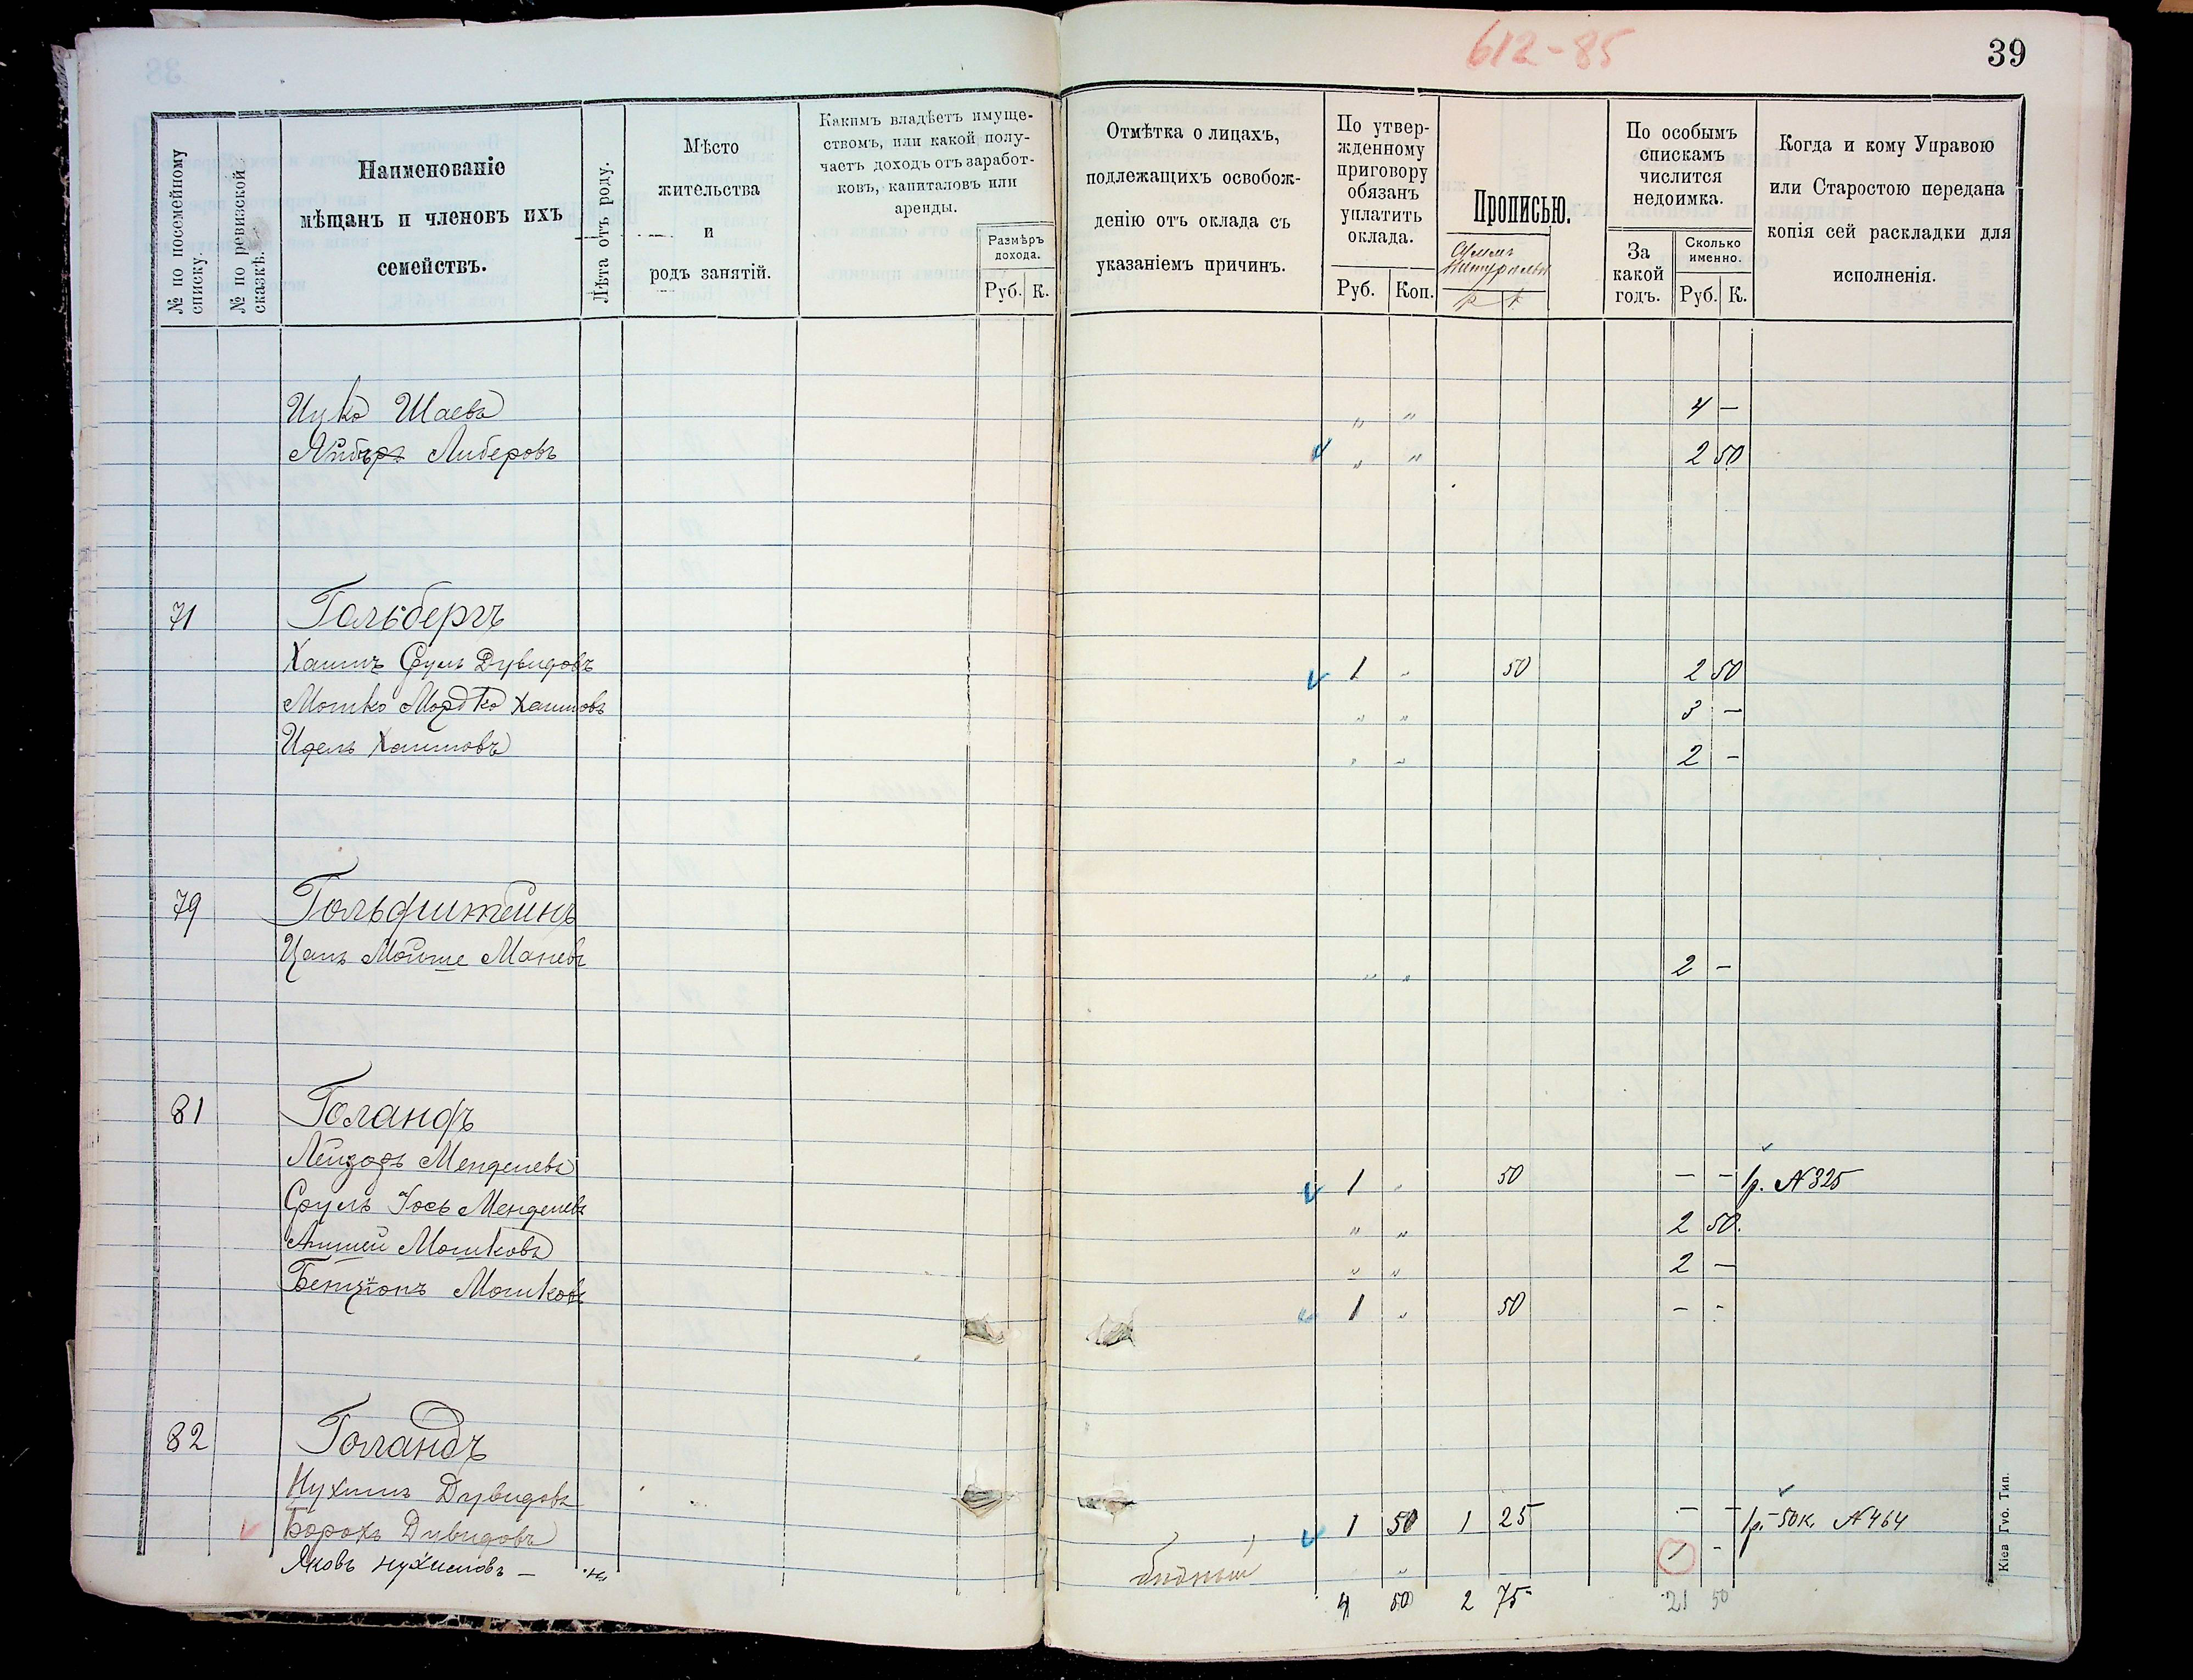 612-85
39
№ по посемейному списку.
№ по ревизской сказкѣ.
Наименованіе
мѣщанъ и членовъ ихъ
семействъ.
Лѣта отъ роду.
Мѣсто
жительства
и
родъ занятій.
Какимъ владѣетъ имуще-
ствомъ, или какой полу-
чаетъ доходъ отъ заработ-
ковъ, капиталовъ или
аренды.
Размѣръ
дохода.
Руб. К.
Отмѣтка о лицахъ,
подлежащихъ освобож-
денію отъ оклада съ
указаніемъ причинъ.
По утвер-
жденному
приговору
обязанъ
уплатить
оклада.
Руб. Коп.
Прописью.
р к
По особымъ
спискамъ
числится
недоимка.
За
какой
годъ.
Сколько
именно.
Руб. К.
Когда и кому Управою
или Старостою передана
копія сей раскладки для
исполненія.
Ицко Шаевъ " " 4 —
Либеровъ " " 2 50
71 Гольбергъ
Хаимъ Сруль Дувидовъ 1 " 50 2 50
Мошко Мордко Хаимовъ " " 3 —
Идель Хаимовъ " " 2 —
79 Гольдштейнъ
Мойше Маневъ " " 2 —
81 Голандъ
Лейзоръ Менделевъ 1 " 50 — — 1р. №325
Сруль Іось Менделевъ " " 2 50.
Мошковъ " " 2 —
Бенціонъ Мошковъ 1 " 50 — -
82 Голандъ
Нухимъ Дувидовъ
Борохъ Дувидовъ 1 50 1 25 — — 1р.-50к. №464
Яковъ Нухимовъ — бѣдный " 1 -
4 50 2 75 21 50
Кіев Губ. Тип.